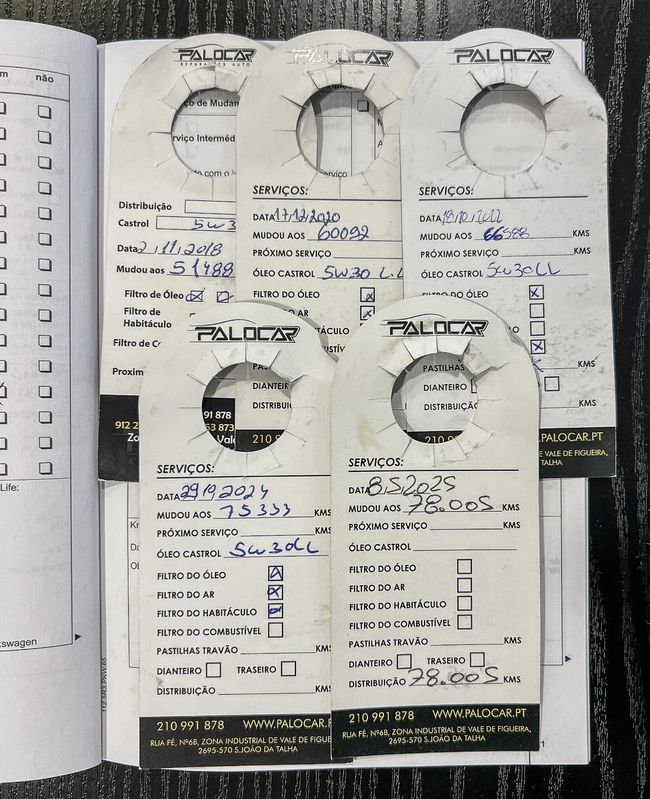 não
PALOCAR
REPARAÇÕES AUTO
ço de Mudan
rviço Interméd
Distribuição
Castrol 5W3
Data 2/11/2018
Mudou aos 51488
Filtro de Óleo
Filtro de
Habitáculo
Filtro de C
Proxim
912 2
Zo
91 878
53 873
Val
PALOCAR
SERVIÇOS:
DATA 17/12/2020
MUDOU AOS 60092
PRÓXIMO SERVIÇO
ÓLEO CASTROL 5W30 L.L
FILTRO DO ÓLEO
DO AR
TÁCULO
USTÍVEL
PASTILHAS
DIANTEIR
DISTRIBUIÇ
210 9
PALOCAR
SERVIÇOS:
DATA
MUDOU AOS 66988 KMS
PRÓXIMO SERVIÇO KMS
ÓLEO CASTROL 5W30LL
FILTRO DO ÓLEO
PASTILHAS KMS
DIANTEIRO
DISTRIBUIÇÃO KMS
210 99
.PALOCAR.PT
DE VALE DE FIGUEIRA,
TALHA
PALOCAR
SERVIÇOS:
DATA 29/10/2024
MUDOU AOS 75333 KMS
PRÓXIMO SERVIÇO KMS
ÓLEO CASTROL 5W30LL
FILTRO DO ÓLEO
FILTRO DO AR
FILTRO DO HABITÁCULO
FILTRO DO COMBUSTÍVEL
PASTILHAS TRAVÃO KMS
DIANTEIRO TRASEIRO
DISTRIBUIÇÃO KMS
210 991 878 WWW.PALOCAR.P
RUA FÉ, Nº6B, ZONA INDUSTRIAL DE VALE DE FIGUE
2695-570 S.JOÃO DA TALHA
PALOCAR
SERVIÇOS:
DATA 8.5.2025
MUDOU AOS 78.005 KMS
PRÓXIMO SERVIÇO KMS
ÓLEO CASTROL
FILTRO DO ÓLEO
FILTRO DO AR
FILTRO DO HABITÁCULO
FILTRO DO COMBUSTÍVEL
PASTILHAS TRAVÃO KMS
DIANTEIRO TRASEIRO
DISTRIBUIÇÃO 78.005 KMS
210 991 878 WWW.PALOCAR.PT
RUA FÉ, Nº6B, ZONA INDUSTRIAL DE VALE DE FIGUEIRA,
2695-570 S.JOÃO DA TALHA
Life:
kswagen